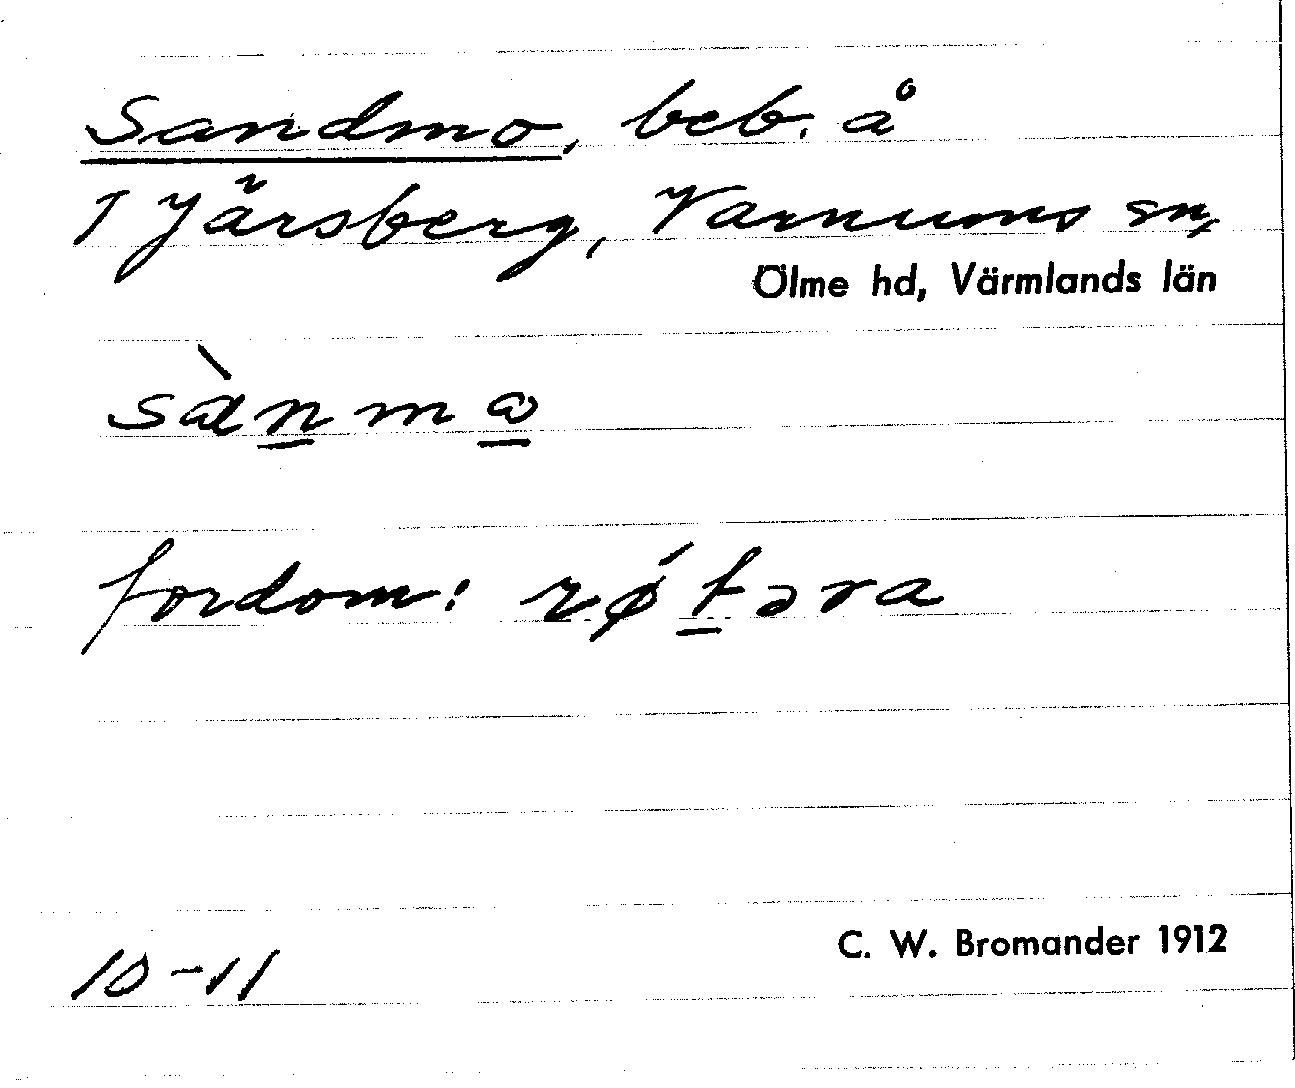 Sandmo, beb. å
1 Järsberg, Varnums sn,
Ölme hd, Värmlands län
sànmɷ
fordom: røʹtəra
C. W. Bromander 1912
10-11